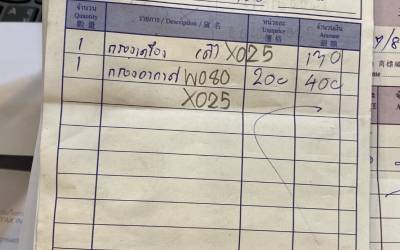 จำนวน รายการ / Description / 貨 名 หน่วยละ จำนวนเงิน
Quantity Unitprice Amount
數 量 單 價 銀 額
1 กรองเครื่อง X025 130
1 กรองอากาศ W080 200 400
X025